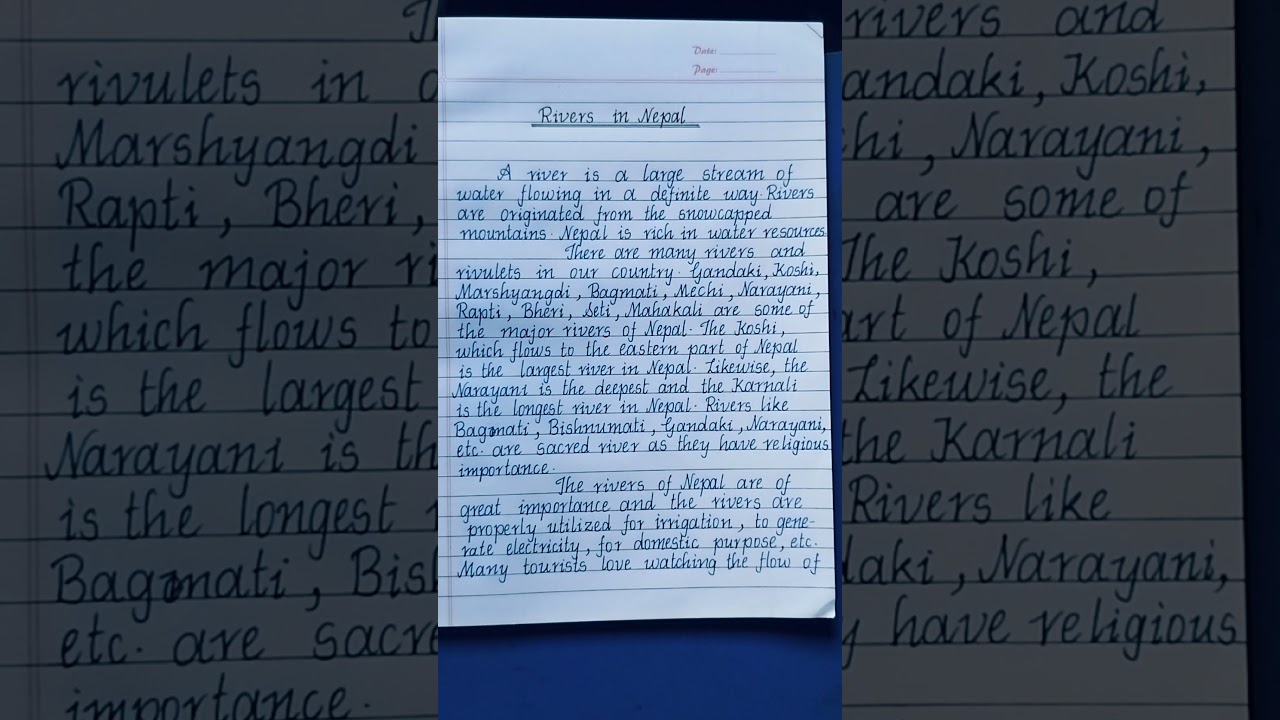 Date:
Page:
Rivers in Nepal
A river is a large stream of
water flowing in a definite way. Rivers
are originated from the snowcapped
mountains. Nepal is rich in water resources
There are many rivers and
rivulets in our country. Gandaki, Koshi,
Marshyangdi, Bagmati, Mechi, Narayani,
Rapti, Bheri, Seti, Mahakali are some of
the major rivers of Nepal. The Koshi,
which flows to the eastern part of Nepal
is the largest river in Nepal. Likewise, the
Narayani is the deepest and the Karnali
is the longest river in Nepal. Rivers like
Bagmati, Bishnumati, Gandaki, Narayani,
etc. are sacred river as they have religious
importance.
The rivers of Nepal are of
great importance and the rivers are
properly utilized for irrigation, to gene-
rate electricity, for domestic purpose, etc.
Many tourists love watching the flow of